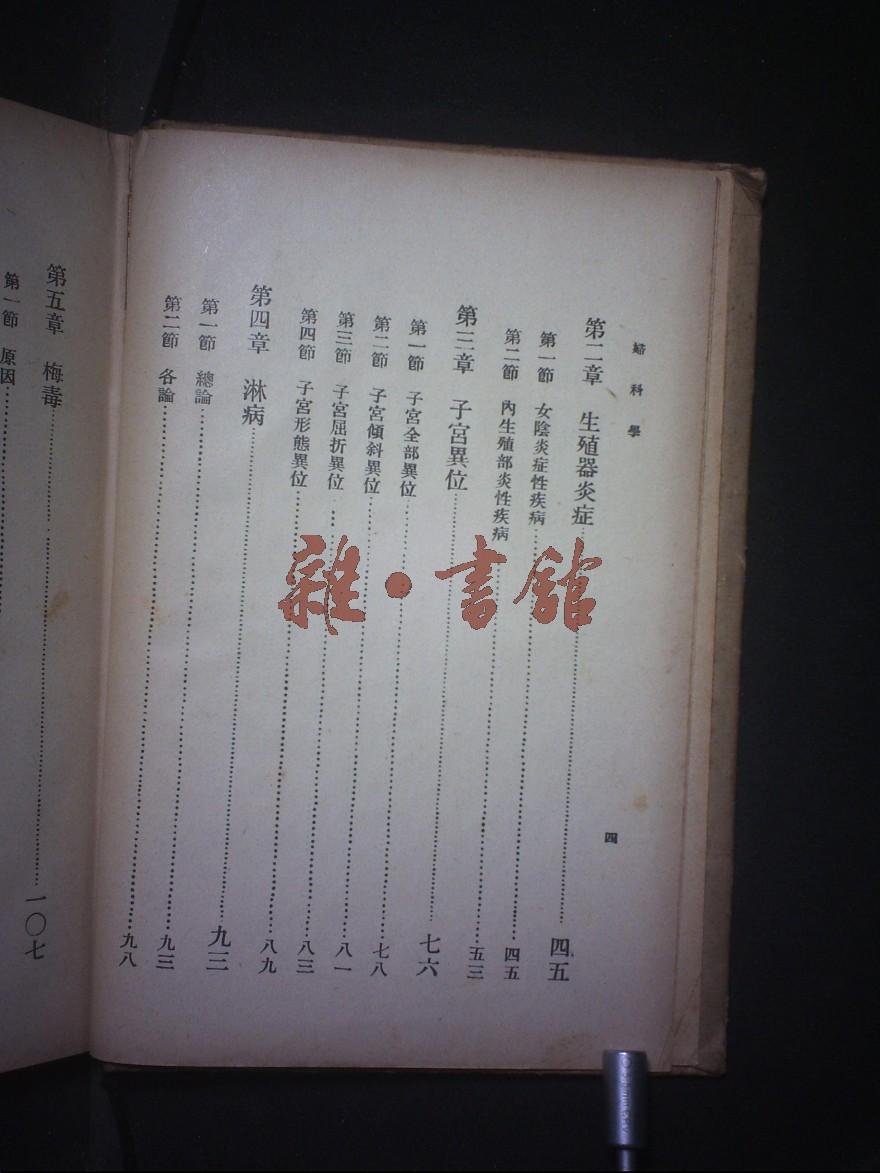 婦科學
四
第二章 生殖器炎症……四五
第一節 女陰炎症性疾病……四五
第二節 內生殖部炎性疾病……五三
第三章 子宮異位……七六
第一節 子宮全部異位……七八
第二節 子宮傾斜異位……八一
第三節 子宮屈折異位……八三
第四節 子宮形態異位……八九
第四章 淋病……九三
第一節 總論……九三
第二節 各論……九八
第五章 梅毒……一〇七
第一節 原因……
雜·書館